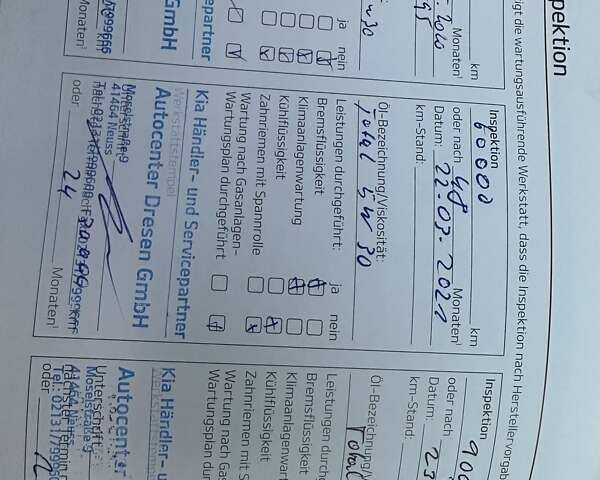 spektion
igt die wartungsausführende Werkstatt, dass die Inspektion nach Herstellervorgab
km
Monaten¹
95
ja nein
partner
GmbH
Monaten¹
Inspektion
60000 km
oder nach 48 Monaten¹
Datum: 22.03.2021
km-Stand:
Öl-Bezeichnung/Viskosität:
Total 5W30
Leistungen durchgeführt: ja nein
Bremsflüssigkeit
Klimaanlagenwartung
Kühlflüssigkeit
Zahnriemen mit Spannrolle
Wartung nach Gasanlagen-
Wartungsplan durchgeführt
Kia Händler- und Servicepartner
Werkstattstempel
Autocenter Dresen GmbH
Moselstraße 9
41464 Neuss
oder 24 Monaten¹
Inspektion
900
oder nach
Datum: 23
km-Stand:
Öl-Bezeichnung/V
Total
Leistungen durc
Bremsflüssigkeit
Klimaanlagenwart
Kühlflüssigkeit
Zahnriemen mit S
Wartung nach Gas
Wartungsplan du
Kia Händler- u
Autocenter
Moselstraße 9
41464 Neuss
Tel.: 02131/79990
oder